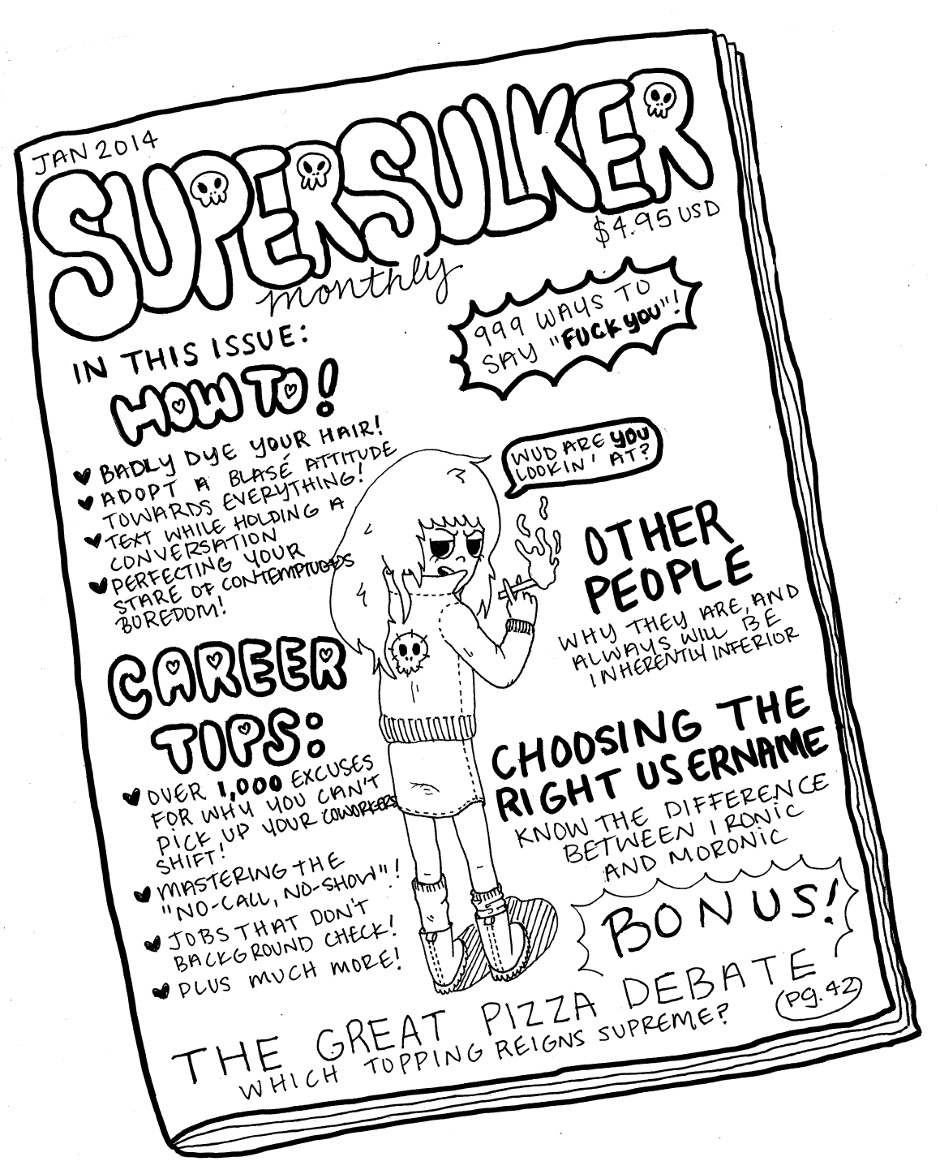 JAN 2014
SUPERSULKER
monthly
$4.95 USD
999 WAYS TO
SAY "FUCK YOU"!
IN THIS ISSUE:
HOW TO!
♥ BADLY DYE YOUR HAIR!
♥ ADOPT A BLASÉ ATTITUDE
TOWARDS EVERYTHING!
♥ TEXT WHILE HOLDING A
CONVERSATION
♥ PERFECTING YOUR
STARE OF CONTEMPTUOUS
BOREDOM!
WUD ARE YOU
LOOKIN' AT?
OTHER
PEOPLE
WHY THEY ARE, AND
ALWAYS WILL BE
INHERENTLY INFERIOR
CAREER
TIPS:
♥ OVER 1,000 EXCUSES
FOR WHY YOU CAN'T
PICK UP YOUR COWORKERS
SHIFT!
♥ MASTERING THE
"NO-CALL, NO-SHOW"!
♥ JOBS THAT DON'T
BACKGROUND CHECK!
♥ PLUS MUCH MORE!
CHOOSING THE
RIGHT USERNAME
KNOW THE DIFFERENCE
BETWEEN IRONIC
AND MORONIC
BONUS!
THE GREAT PIZZA DEBATE
WHICH TOPPING REIGNS SUPREME?
pg. 42